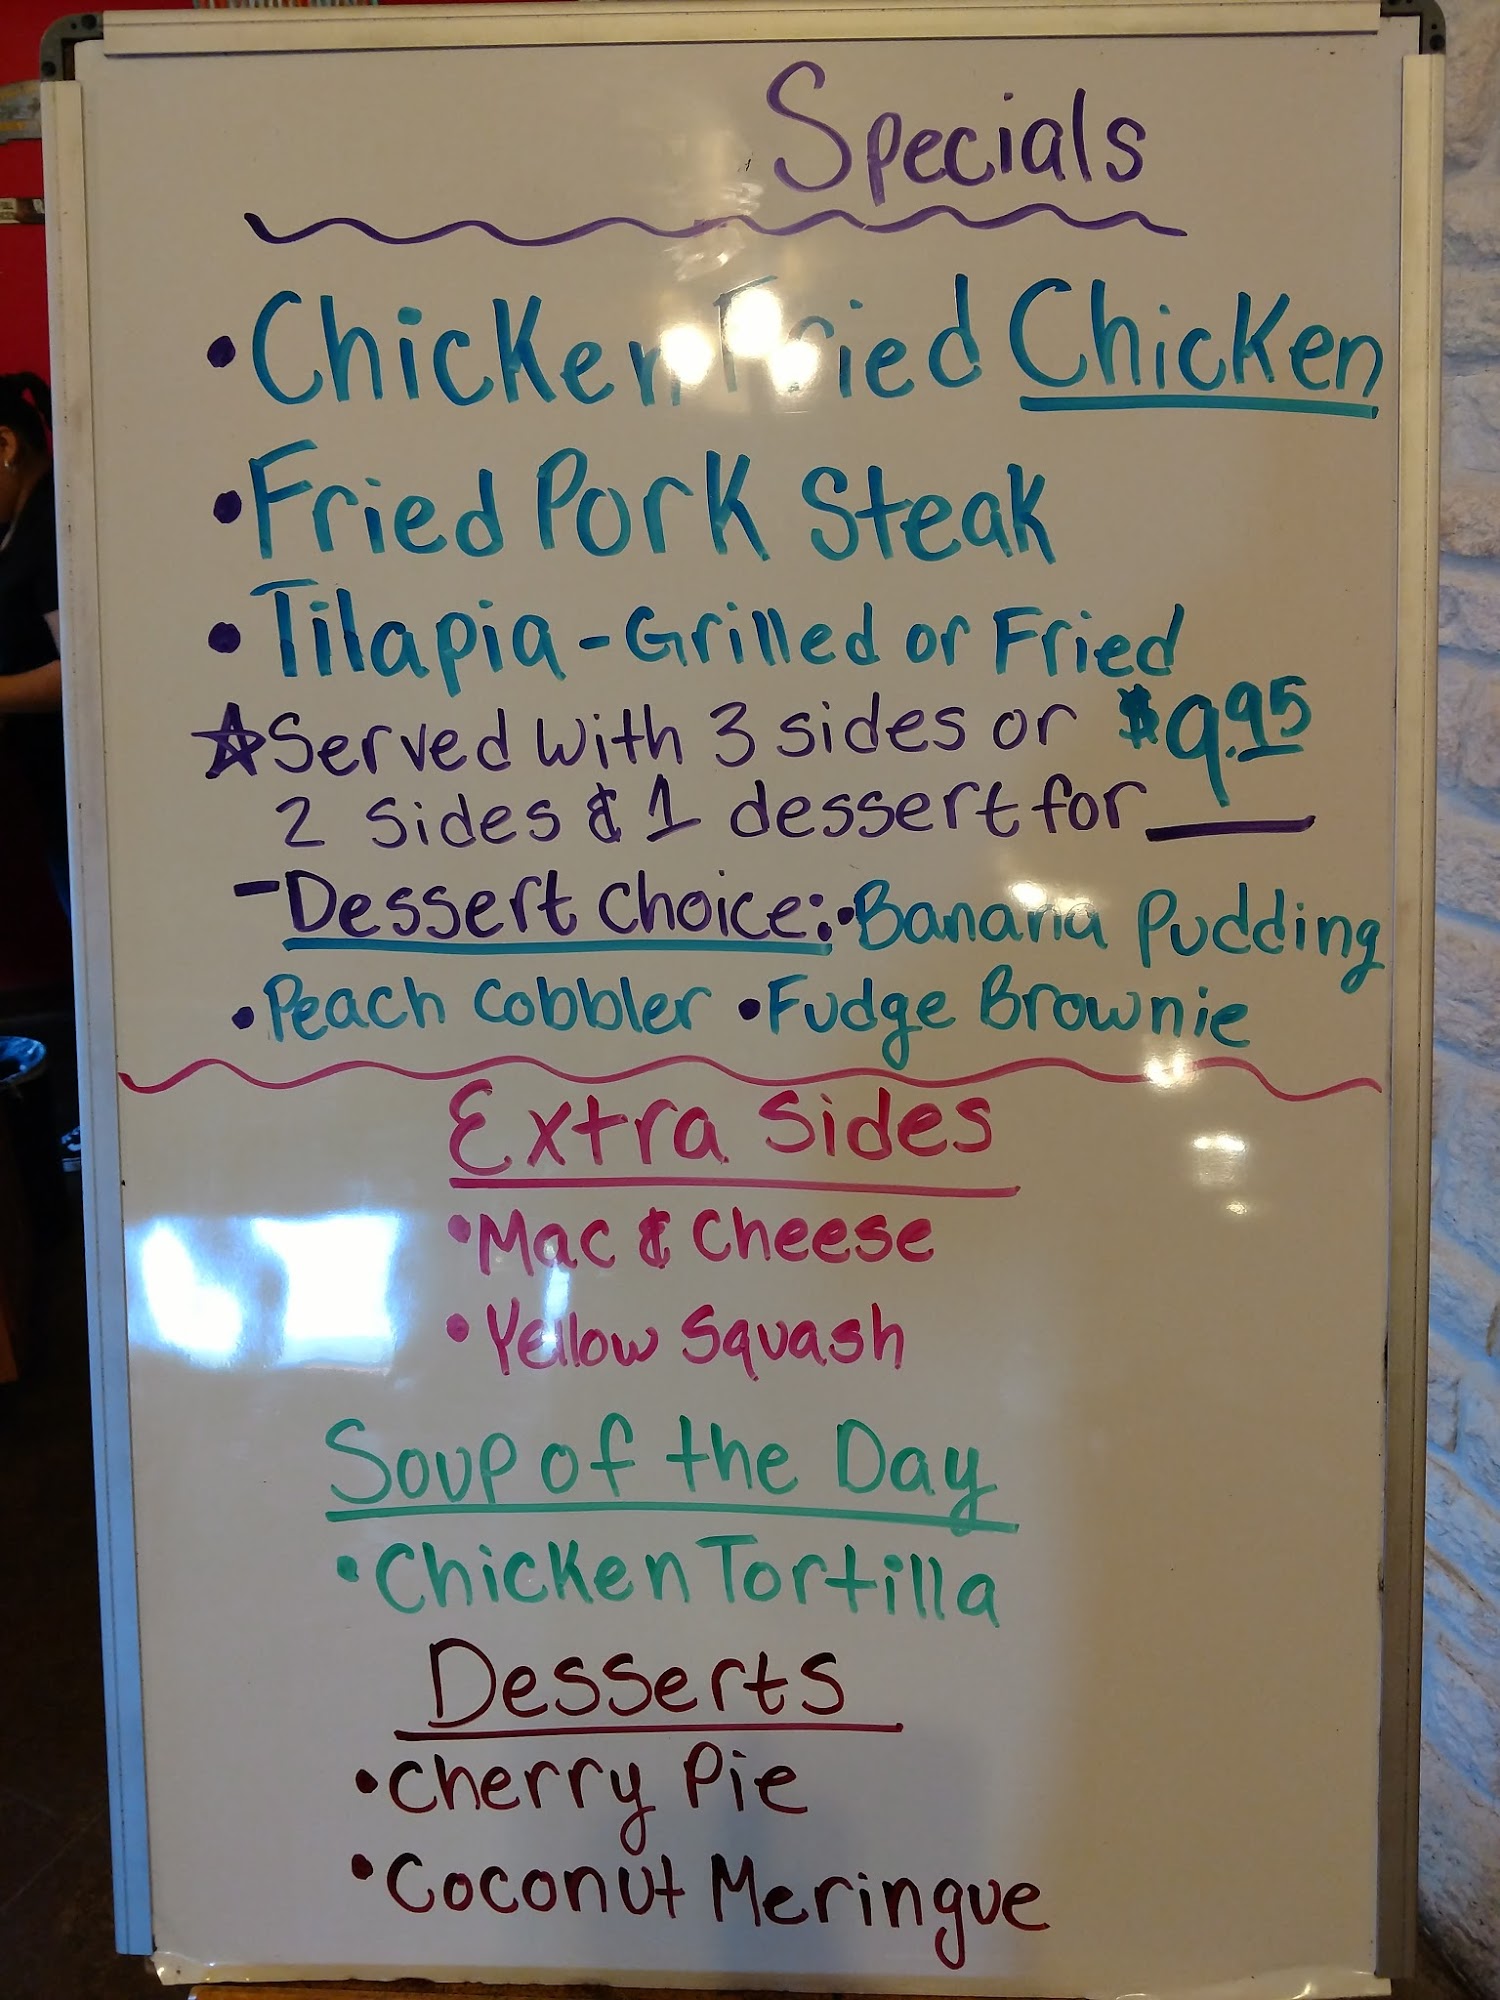 Specials
• Chicken Fried Chicken
• Fried Pork Steak
• Tilapia - Grilled or Fried
☆ Served with 3 sides or $9.95
2 sides & 1 dessert for ____
- Dessert Choice: • Banana Pudding
• Peach Cobbler • Fudge Brownie
Extra Sides
• Mac & Cheese
• Yellow Squash
Soup of the Day
• Chicken Tortilla
Desserts
• Cherry Pie
• Coconut Meringue